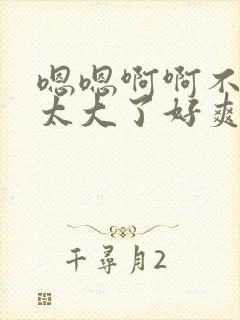 嗯嗯啊啊不
太大了好爽
千尋月2